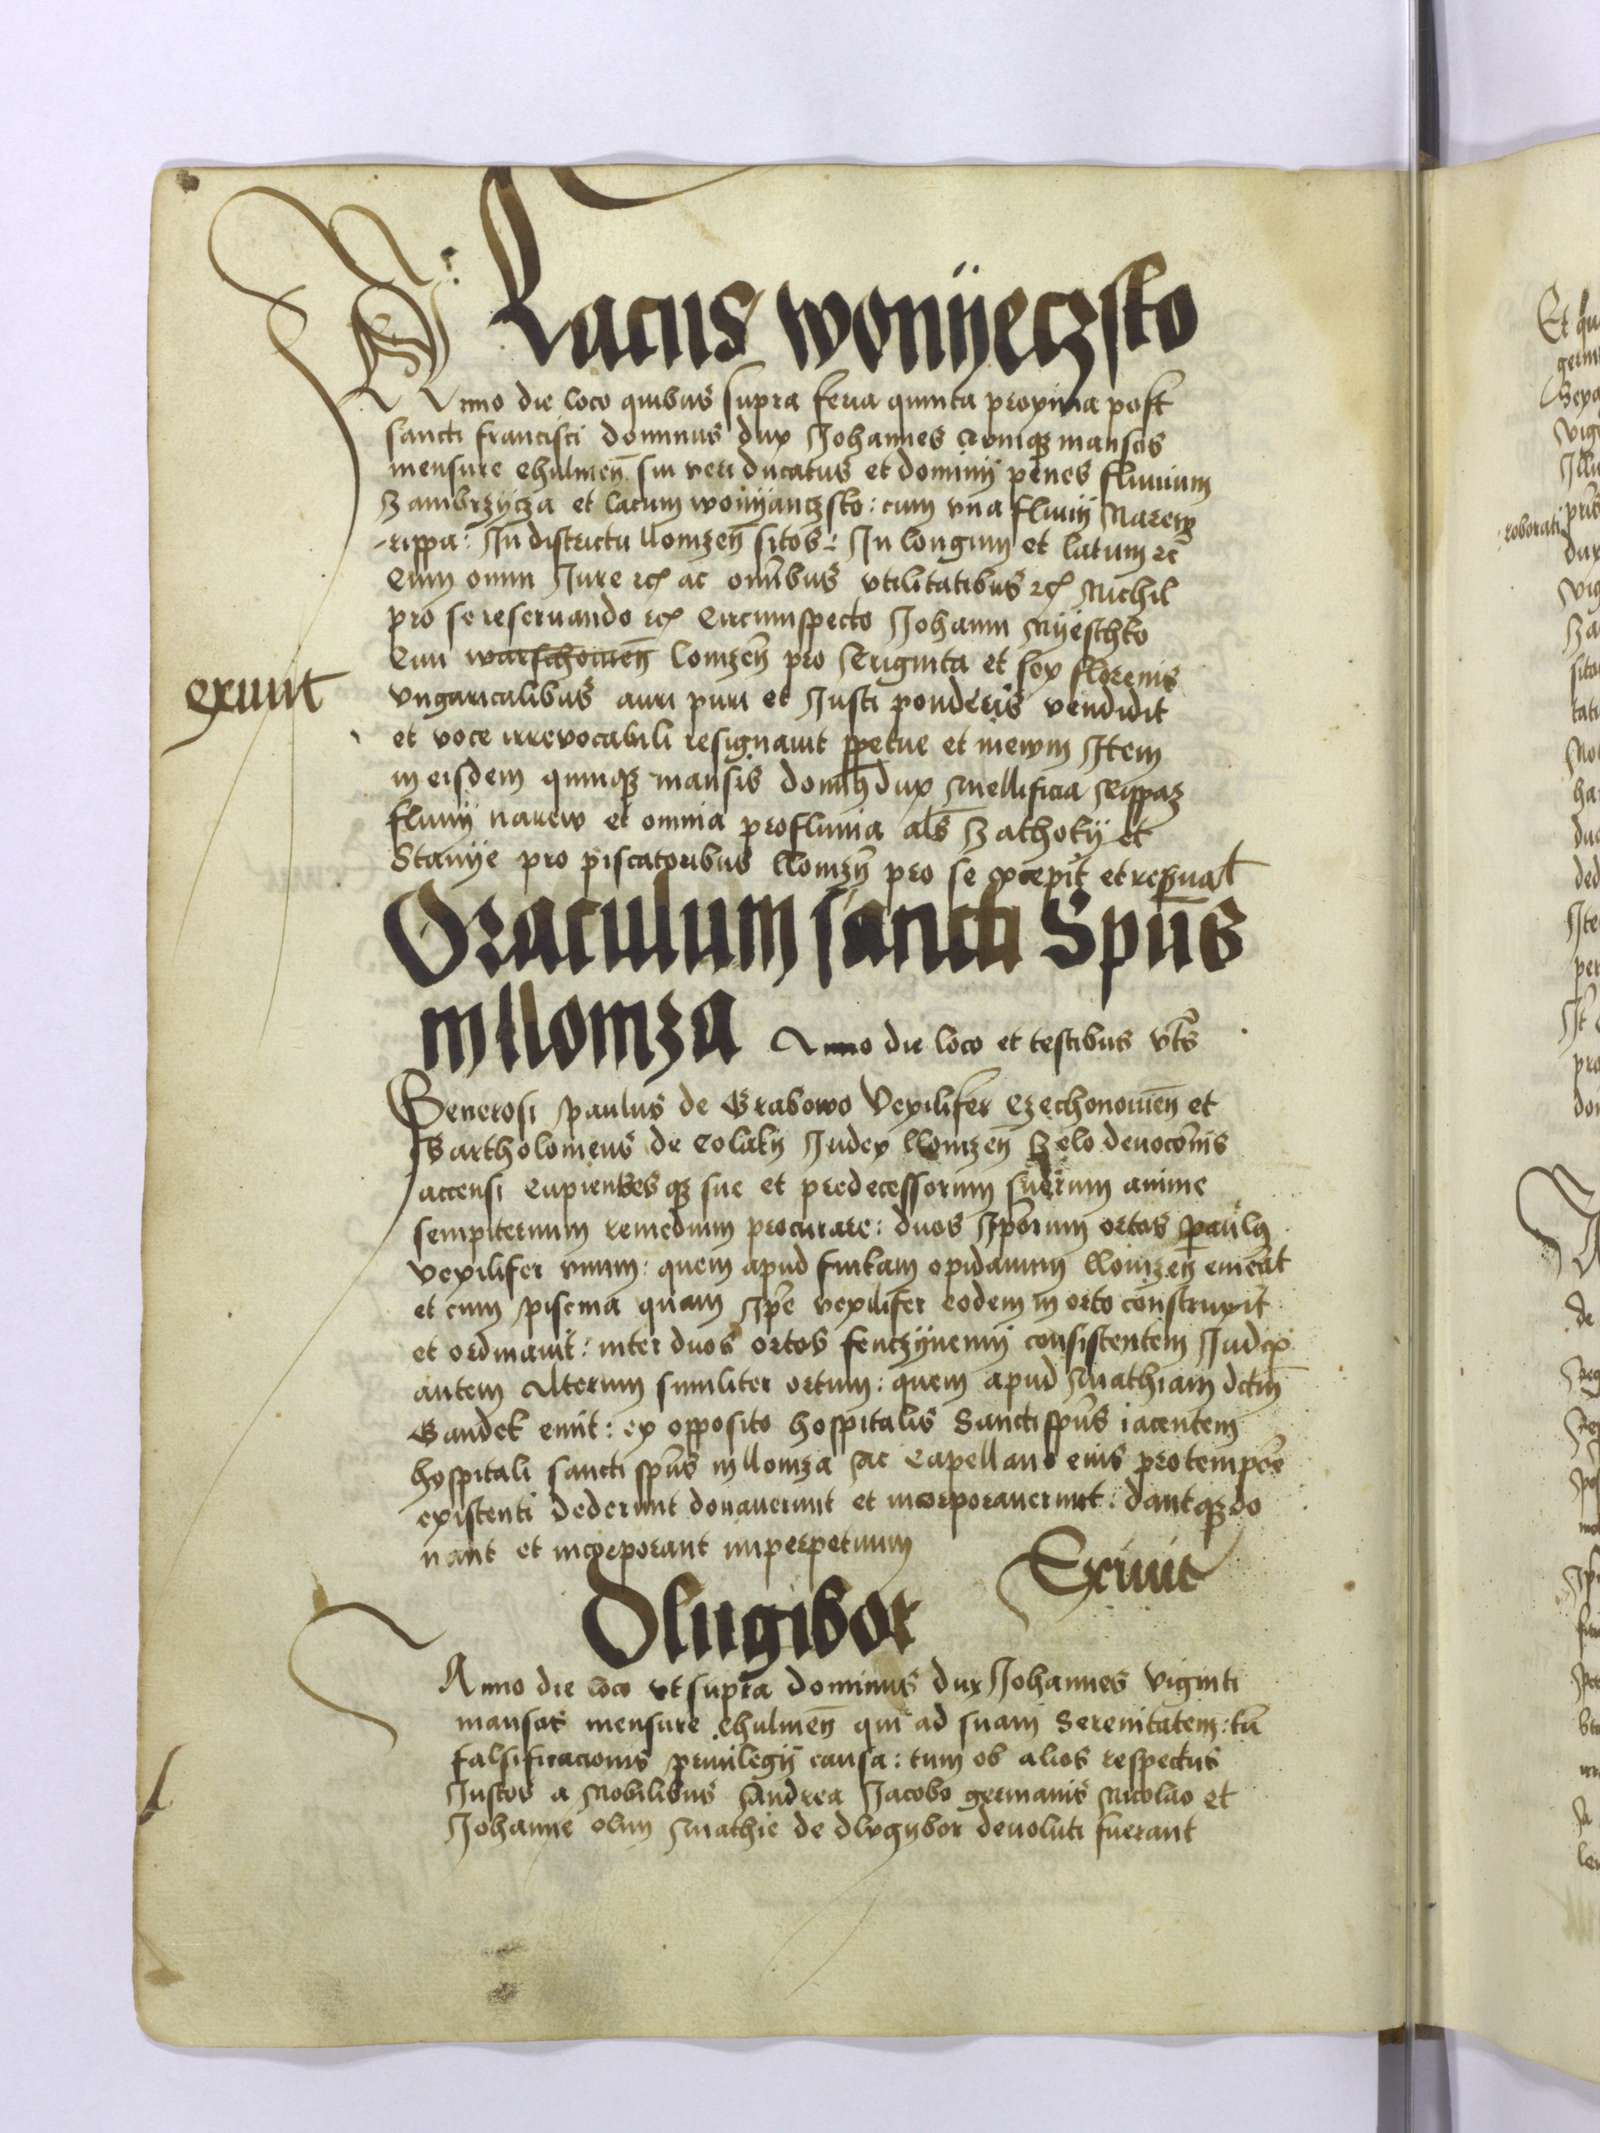 Lacus wonyeczsko
Anno die loco quibus supra feria quinta proxima post
sancti francisci dominus dux Johannes quinqz mansos
mensure chulmen sui veri ducatus et dominij penes fluuium
Zambrzycza et lacum wonyanczsko: cum vna fluuij Narew
rippa: In districtu llomzen sitos: In longum et latum rc
Cum omni Jure rc ac omibus vtilitatibus rc Nichil
pro se reseruando rc Circumspecto Johanni Nyeschko
Ciui warschouien lomzen pro Triginta et sex florenis
vngaricalibus auri puri et Justi ponderis vendidit
et voce irrevocabili resignauit ppetue et in ewm Item
in eisdem quinqz mansis domin9 dux Mellificia Rippaz
fluuij narew et omnia profluuia als Zathoky et
Stawye pro piscatoribus llomzn pro se excepit et reseruat
exiuit
Oraculum sancti Spus
in llomza Anno die loco et testibus vts
Generosi paulus de Grabowo Vexilifer Czechonouien et
Bartholomeus de Colaky Judex llomzen Zelo deuocionis
accensi Cupientesqz sue et predecessorum suorum anime
sempiternum remedium procurare: duos Iporum ortos paul9
vexilifer vnum: quem apud furkam opidanum llomzen emerat
et cum piscina quam Ipe vexilifer eodem in orto construxit
et ordinauit: inter duos ortos fenczynemij consistentem Judex
autem Alterum similiter ortum: quem apud Mathiam dctm
Gandek emit: ex opposito hospitalis Sancti spus iacentem
hospitali sancti spus in llomza Ac Capellano eius pro tempore
existenti dederunt donauerunt et incorporauerunt: dantqz do
nant et incorporant imperpetuum
Exiuit
Dlugibor
Anno die loco vt supra dominus dux Johannes viginti
mansos mensure chulmen qui ad suam Serenitatem: tu
falsificacionis priuilegij causa: tum ob alios respectus
Justos a Nobilibus Andrea Jacobo germanis Nicolao et
Johanne olim Mathie de dlvgybor deuoluti fuerant
roborati